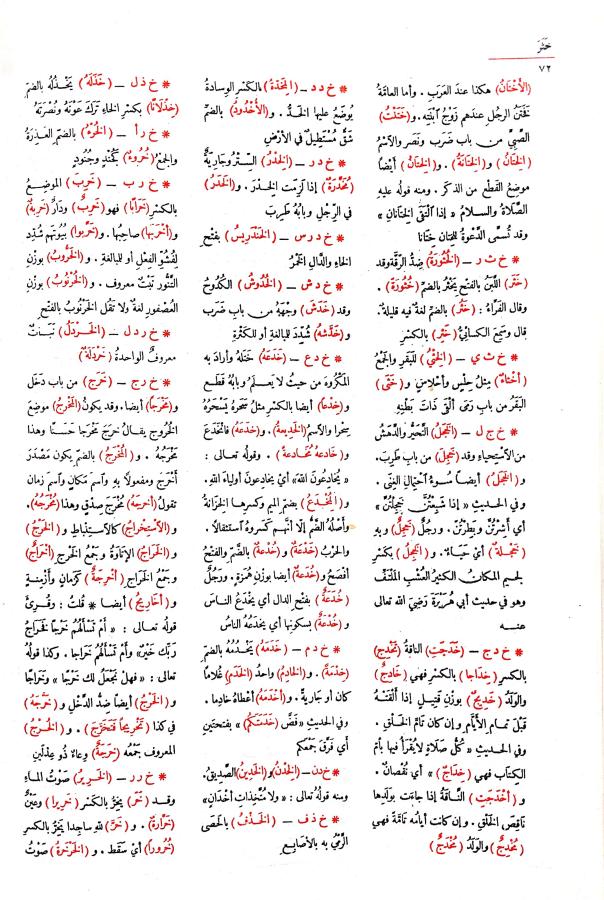 خَثَرَ
٧٢
(الأَخْتَانُ) هكذا عند العَرَبِ . وأما العامّةُ
فَخَتَنُ الرجلِ عندهم زَوْجُ ابْنَتِه . و (خَتَنْتُ)
الصَّبِيَّ من باب ضَرَب ونَصَر والاسْمُ
(الخِتَانُ) و (الخِتَانَةُ) . و (الخِتَانُ) أيضاً
موضعُ القَطْع من الذكَر . ومنه قولُه عليه
الصَّلاةُ والسلامُ « إذا الْتَقَى الخِتَانانِ »
وقد تُسمَّى الدَّعوةُ للخِتان خِتَانا
* خ ث ر – (الخُثُورَةُ) ضِدُّ الرِّقَّة وقد
(خَثَرَ) اللَّبَنُ بالفتح يَخْثُر بالضمّ (خُثُورَةً) .
وقال الفرّاءُ : (خَثُرَ) بالضم لغةٌ فيه قليلةٌ .
قال وسَمِعَ الكسائيُّ (خَثِرَ) بالكسْر
* خ ث ي – (الخِثْيُ) للبَقَر والجمْعُ
(أَخْثَاءٌ) مِثلُ حِلْسٍ وأحْلاسٍ و (خَثَى)
البَقَرُ من باب رَمَى أَلْقَى ذَاتَ بَطْنِه
* خ ج ل – (الخَجَلُ) التَّحَيُّر والدَّهَشُ
من الاسْتِحياء وقد (خَجِلَ) من باب طَرِبَ .
و (الخَجَلُ) أيضاً سُوءُ احْتِمَالِ الغِنَى .
وفي الحديث « إذا شَبِعْتُنَّ خَجِلْتُنَّ »
أي أَشِرْتُنَّ وبَطِرْتُنَّ . ورجُلٌ (خَجِلٌ) وبه
(خَجْلَةٌ) أي حَيَاءٌ . و (الخَجِلُ) بكَسْر
الجيم المكانُ الكثيرُ العُشْبِ المُلْتَفُّ
وهو في حديث أبي هُرَيْرَةَ رَضِيَ الله تعالى
عنـــه
* خ د ج – (خَدَجَتِ) الناقةُ (تَخْدِج)
بالكسر (خِدَاجا) بالكسر فهي (خَادِجٌ)
والوَلَدُ (خَدِيجٌ) بوزْن قَتِيلٍ إذا أَلْقَتْهُ
قَبْلَ تمامِ الأيّام وإن كان تامَّ الخَلْق .
وفي الحديث « كُلُّ صَلَاةٍ لا يُقْرَأُ فيها بأُمّ
الكِتاب فهي (خِدَاجٌ) » أي نُقْصَانٌ .
و (أخْدَجَتِ) النَّاقةُ إذا جاءت بوَلَدِها
ناقِصَ الخَلْق . وإن كانت أيامُه تامّةً فهي
(مُخْدِجٌ) والوَلَدُ (مُخْدَجٌ)
* خ د د – (المِخَدَّةُ) بالكَسْر الوِسادةُ
يُوضَعُ عليها الخَدُّ . و (الأُخْدُودُ) بالضم
شَقٌّ مُسْتَطِيلٌ في الأرْضِ
* خ د ر – (الخِدْرُ) السِّتْرُ وجَارِيةٌ
(مُخَدَّرَةٌ) إذا لَزِمَتِ الخِدْرَ . و (الخَدَرُ)
في الرِّجْلِ وبابُهُ طَرِبَ
* خ د ر س – (الخَنْدَرِيسُ) بفتح
الخاء والدّالِ الخَمْرُ
* خ د ش – (الخُدُوشُ) الكُدُوحُ
وقد (خَدَشَ) وجْهَهُ من باب ضَرَب
و (خَدَّشَهُ) شُدّد للمبالغة أو للكَثْرة
* خ د ع – (خَدَعَهُ) خَتَلَهُ وأرادَ به
المكْرُوهَ من حيثُ لا يَعلَم وبابُهُ قَطَع
و (خِدْعاً) أيضا بالكسْر مثلُ سَحَرهُ يَسْحَرُهُ
سِحْرا والاسمُ (الخَدِيعةُ) . و (خَدَعَهُ) فَانْخَدَعَ
و (خَادعه مُخَادعةً) . وقولُه تعالى :
« يُخادِعُونَ اللهَ» أي يخادِعونَ أولياءَ الله .
و (المُخْدَعُ) بضم الميم وكَسرِها الخِزَانةُ
وأَصْلُهُ الضَّمُّ إلا أنَّهم كَسَروهُ استِثقَالا .
والحرْبُ (خَدْعَةٌ) و (خُدْعةٌ) بالضَّمّ والفتحُ
أفصَحُ و (خُدَعَةٌ) أيضا بوزن هُمَزةٍ . ورَجُلٌ
(خُدَعَةٌ) بفتح الدال أي يَخْدَعُ الناسَ
و (خُدْعَةٌ) بسكونها أي يخدَعُهُ الناسُ
* خ د م – (خَدَمَه) يَخْدُمُهُ بالضم
(خِدْمَةً) . و (الخَادِمُ) واحدُ (الخَدَمِ) غُلَاماً
كان أو جَاريةً . و (أخْدَمَهُ) أعْطاهُ خادِما .
وفي الحديث « فَضَّ (خَدَمَتَكُم) » بفتحتين
أي فَرَّقَ جَمْعَكم
* خ د ن – (الخِدْنُ) و (الخَدِينُ) الصَّدِيقُ.
ومنه قولُه تعالى : «ولا مُتَّخِذَاتِ أَخْدَانٍ»
* خ ذ ف – (الخَذْفُ) بالحَصَى
الرَّمْيُ به بالأصَابِع
* خ ذ ل – (خَذَلَهُ) يَخْذُلُهُ بالضمّ
(خِذْلَانًا) بكسْرِ الخاءِ تَرَكَ عَوْنَهُ ونُصْرَتَهُ
* خ ر أ – (الخُرْءُ) بالضم العَذِرَةُ
والجمعُ (خُرُوءٌ) كَجُنْد وجُنُودٍ
* خ ر ب – (خَرِبَ) الموضِعُ
بالكسْر (خَرَابًا) فهو (خَرِبٌ) ودَارٌ (خَرِبةٌ)
و (أَخْرَبَها) صاحِبُها . و (خَرَّبوا) بيُوتَهم شُدّد
لفُشُوّ الفِعْل أو للمبالغة . و (الخَرُّوبُ) بوزن
التَّنُّور نَبْتٌ معروف . و (الخُرْنُوبُ) بوزن
العُصْفور لغةٌ ولا تَقُل الخَرْنوبُ بالفتح
* خ ر د ل – (الخَرْدَلُ) نَبَاتٌ
معروفٌ الواحدةُ (خَرْدَلةٌ)
* خ ر ج – (خَرَجَ) من باب دَخَل
و (مَخْرَجا) أيضا . وقد يكونُ (المَخْرَجُ) موضِعَ
الخُرُوجِ يقالُ خَرَجَ مَخْرَجا حَسَنًا وهذا
مَخْرَجُهُ . و (المُخْرَجُ) بالضم يكون مَصْدَر
أَخْرَجَ ومفعولًا به واسْمَ مكانٍ واسمَ زمان
تقولُ (أخرَجَهُ) مُخْرَجَ صِدْقٍ وهذا (مُخْرَجُهُ).
و (الاسْتِخْراجُ) كالاستِنْباط و (الخَرْجُ)
و (الخَرَاجُ) الإتَاوَةُ وجَمْعُ الخَرْج (أَخْرَاجٌ)
وجمعُ الخَرَاج (أَخْرِجَةٌ) كزَمان وأزْمِنةٍ
و (أَخَارِيجُ) أيضا * قلتُ : وقُرِئَ
قولُه تعالى : « أَمْ تَسْأَلُهُم خَرْجًا فَخَرَاجُ
رَبِّكَ خَيْرٌ» وأَمْ تَسْأَلُهُم خَراجا . وكذا قولُهُ
تعالى : « فهلْ نَجْعَلُ لك خَرْجًا » وخَرَاجًا
و (الخَرْجُ) أيضاً ضدُّ الدَّخْلِ و (خَرَّجَهُ)
في كذا (تَخْرِيجاً فَتَخَرَّجَ) . و (الخُرْجُ)
المعروف جَمْعُهُ (خِرَجَةٌ) وِعاءٌ ذُو عِدْلَيْن
* خ ر ر – (الخَرِيرُ) صَوْتُ الماءِ
وقد (خَرَّ) يخِرُّ بالكَسْر (خَرِيرا) وعَيْنٌ
(خَرَّارةٌ) . و (خَرَّ) للهِ ساجِدا يخِرُّ بالكسر
(خُرُوراً) أي سَقَط . و (الخَرْخَرَةُ) صَوْتُ